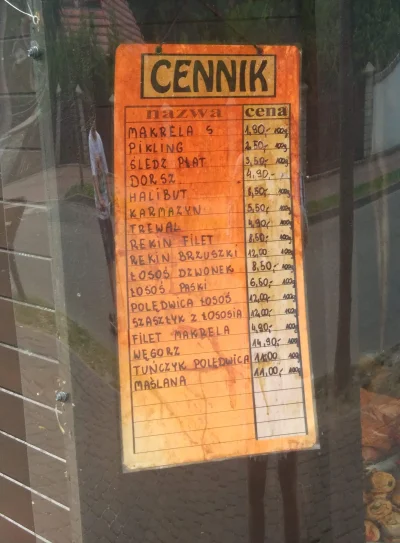 CENNIK
nazwa cena
MAKRELA S 1,80,- 100g
PIKLING 2,50,- 100g
ŚLEDŹ PŁAT 3,50,- 100g
DORSZ 4,90,-
HALIBUT 8,50,- 100g
KARMAZYN 5,50,- 100g
TREWAL 4,90,- 100g
REKIN FILET 8,50,- 100g
REKIN BRZUSZKI 12,00 100g
ŁOSOŚ DZWONEK 8,50,- 100g
ŁOSOŚ PASKI 6,50,- 100g
POLĘDWICA ŁOSOŚ 12,00,- 100g
SZASZŁYK Z ŁOSOSIA 12,00,- 100g
FILET MAKRELA 4,80,- 100g
WĘGORZ 14,90,- 100g
TUŃCZYK POLĘDWICA 11,00 100g
MAŚLANA 11,00,- 100g